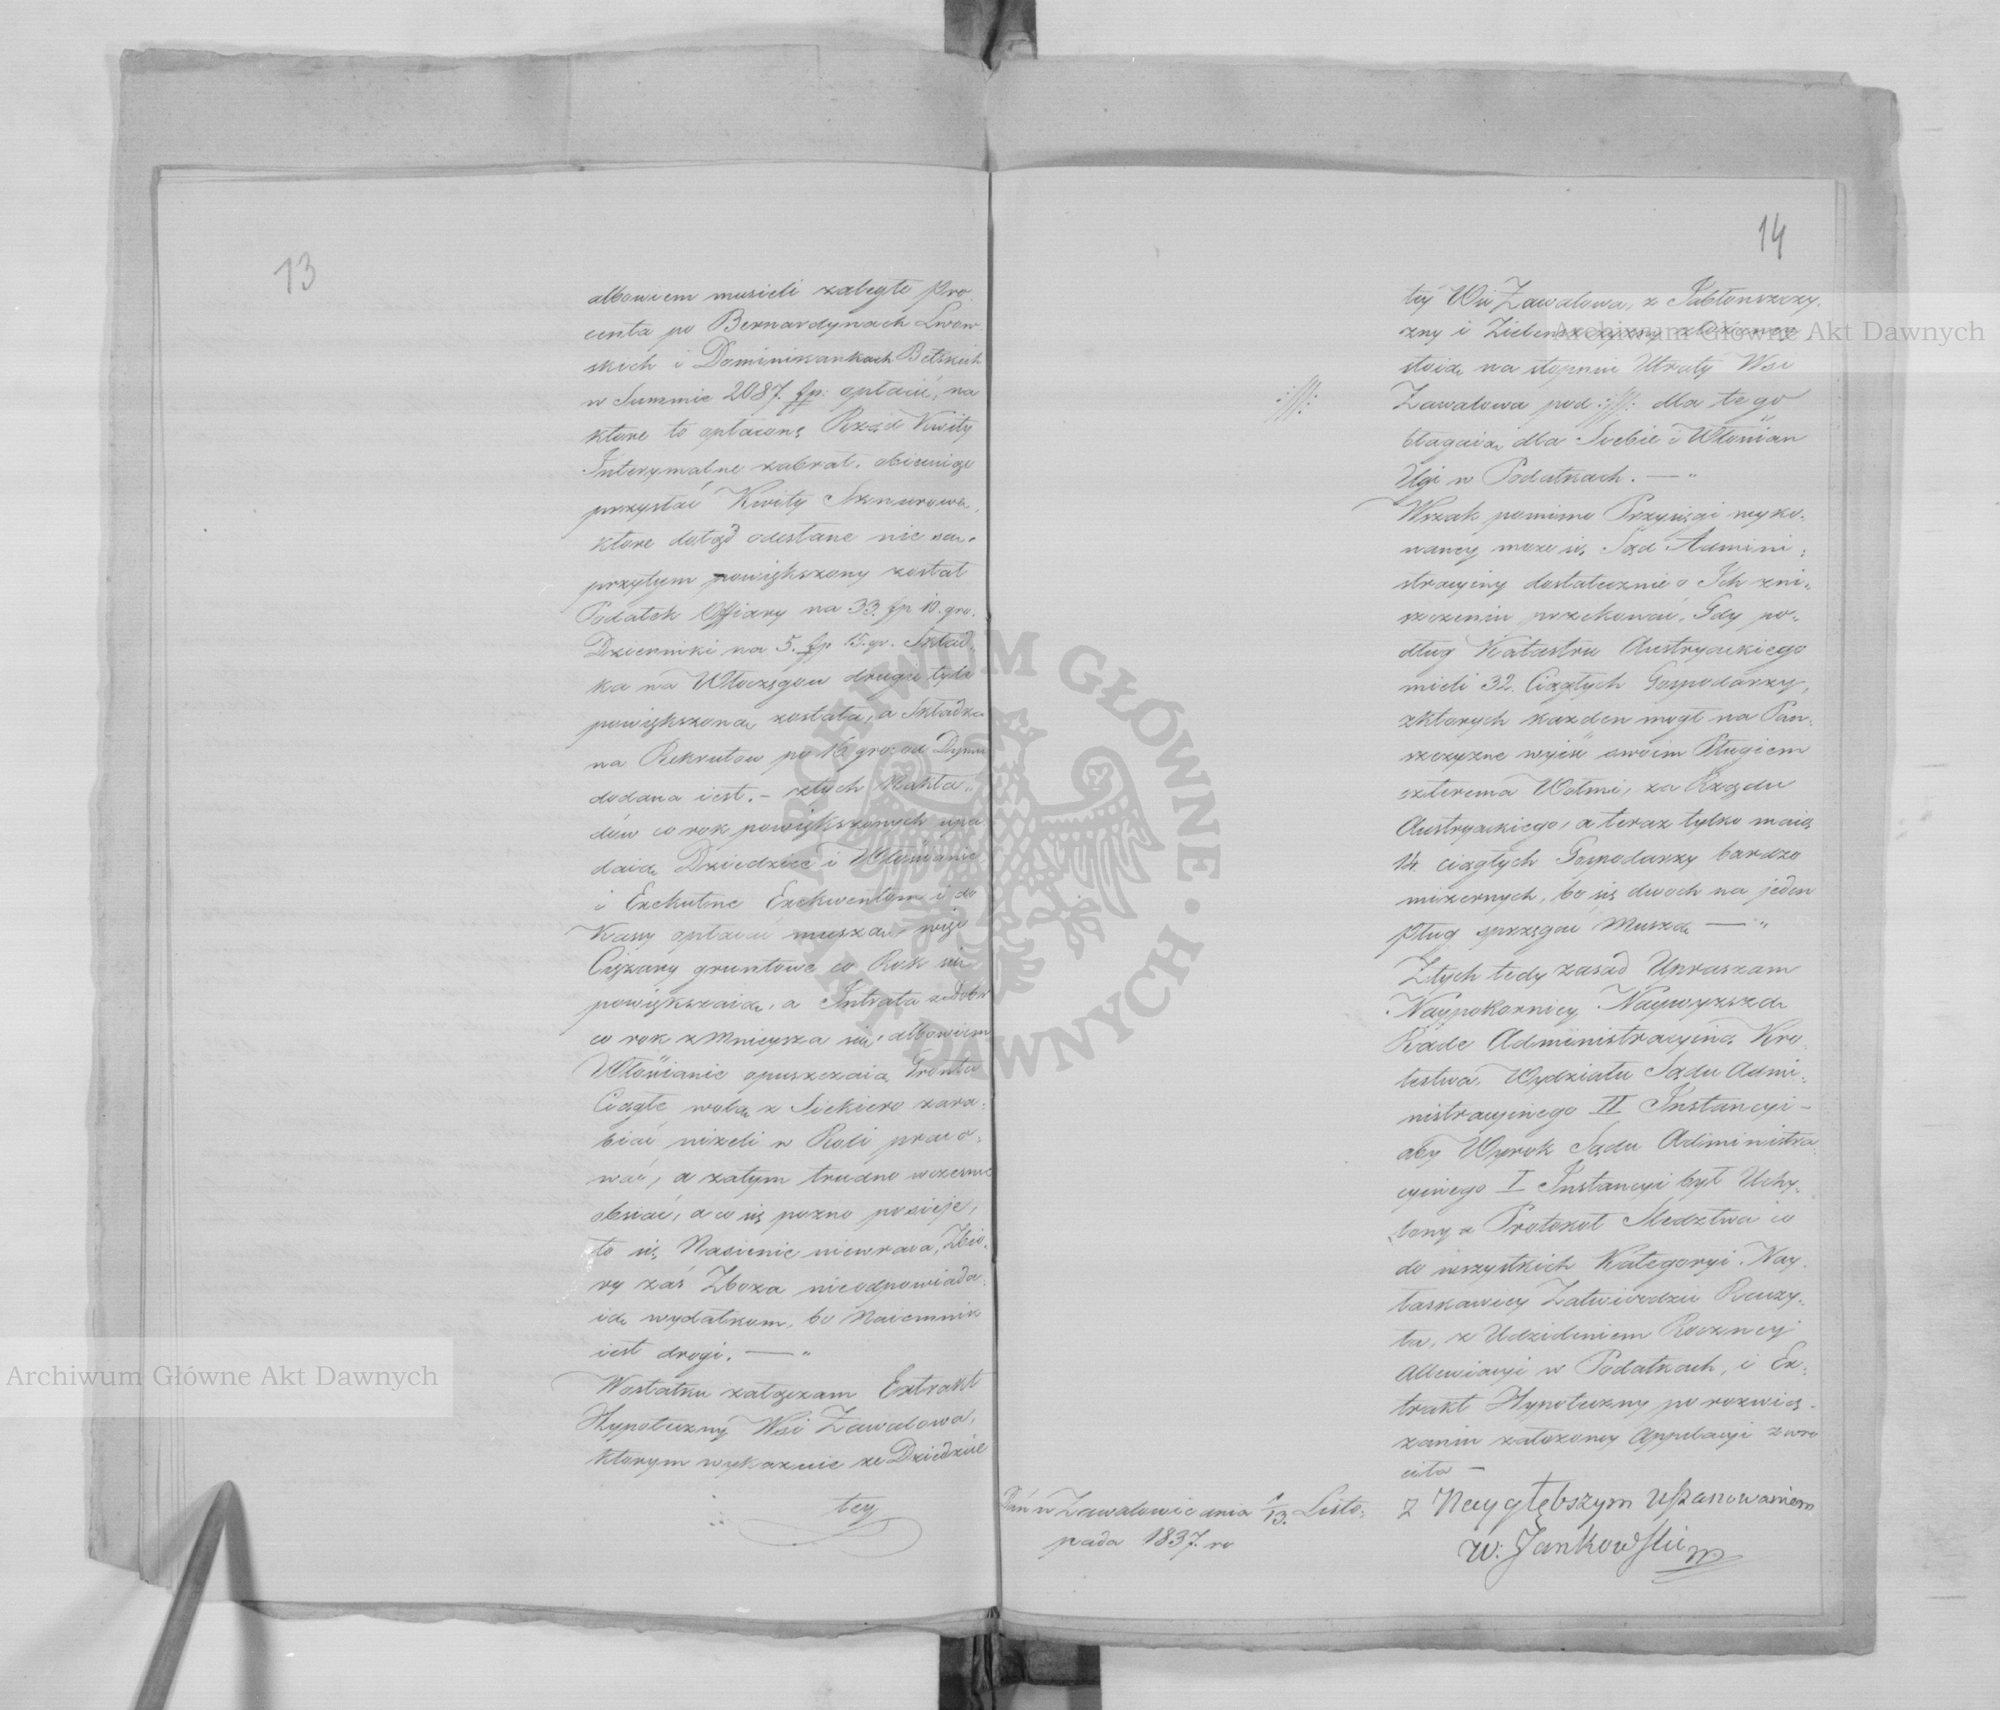 13
albowiem musieli zaległe Pro.
centa po Bernardynach Lwow
skich i Dominikankach Bełskich
w Summie 2087. fp: opłacić, na
ktore to opłacone Rząd Kwity
Interymalne zabrał, obiecuiąc
przysłać Kwity Sznurowe,
ktore dotąd odesłane nie są.
przytym powiększony został
Podatek Offiary na 33. fp 10. gro.
Dzienniki na 5. fp 15. gr. Skład,
ka na Włóczęgow drugie tyle
powiększona została, a Składka
na Rekrutow po 16 gro: od Dymu
dodana iest. – ztych Nakła„
dów co rok powiększonych upa
daią Dziedzice i Włościanie
i Exekutne Exekwentom i do
Kassy opłacać muszą, więc
Ciężary gruntowe co Rok się
powiększaią, a Intrata z Dobr
co rok zmnieysza się, albowiem
Włościanie opuszczaią Gronta
Ciągłe wolą z Siekiero zara„
biać niżeli w Roli praco„
wać, a zatym trudno wczesnie
obsiać, a co się pozno posieje,
to się Nasienie niewraca, Zbio„
ry zaś Zboza nieodpowiada„
ią wydatkom, bo Naiemnik
iest drogi. — „
Wostatku załączam Extrakt
Hypoteczny Wsi Zawalowa,
ktorym wykazuie ze Dziedzice
tey
14
tey Wsi Zawalowa, z Jabłonszczy„
zny i
stoią na stopniu Utraty Wsi
Zawalowa pod :///: dla tego
:///:
błagaią dla Siebie i Włościan
Ulgi w Podatkach. — „
Wszak pomimo Przysięgi wyko„
naney może się Sąd Admini„
stracyiny dostatecznie o Ich zni„
szczeniu przekonać, Gdy po„
dług Katastru Austryackiego
mieli 32. Ciągłych Gospodarzy,
zktorych kazden mogł na Pan„
szczyzne wyiść swoim Pługiem
czterema Wołmi, za Rządu
Austryackiego, a teraz tylko maią
14. ciągłych Gospodarzy bardzo
mizernych, bo się dwoch na jeden
Pług sprzęgać Muszą — „
Ztych tedy zasad Upraszam
Naypokorniey Naywyzszą
Rade Administracyiną Kro„
lestwa, Wydziału Sądu Admi„
nistracyinego II Instancyi –
aby Wyrok Sądu Administra
cyinego I Instancyi był Uchy„
lony a Protokoł Sledztwa co
do wszystkich Kategoryi Nay„
łaskawiey Zatwierdzic Raczy„
ła, z Udzieleniem Roczney
Allewiacyi w Podatkach, i Ex„
trakt Hypoteczny po rozwią„
zaniu załozoney Appellacyi zwro
ciła –
Dań w Zawalowie dnia 1/13. Listo„
pada 1837. ro
z Naygłębszym uszanowaniem
W: Jankowski
ARCHIWUM GŁÓWNE AKT DAWNYCH
Archiwum Główne Akt Dawnych
Archiwum Główne Akt Dawnych